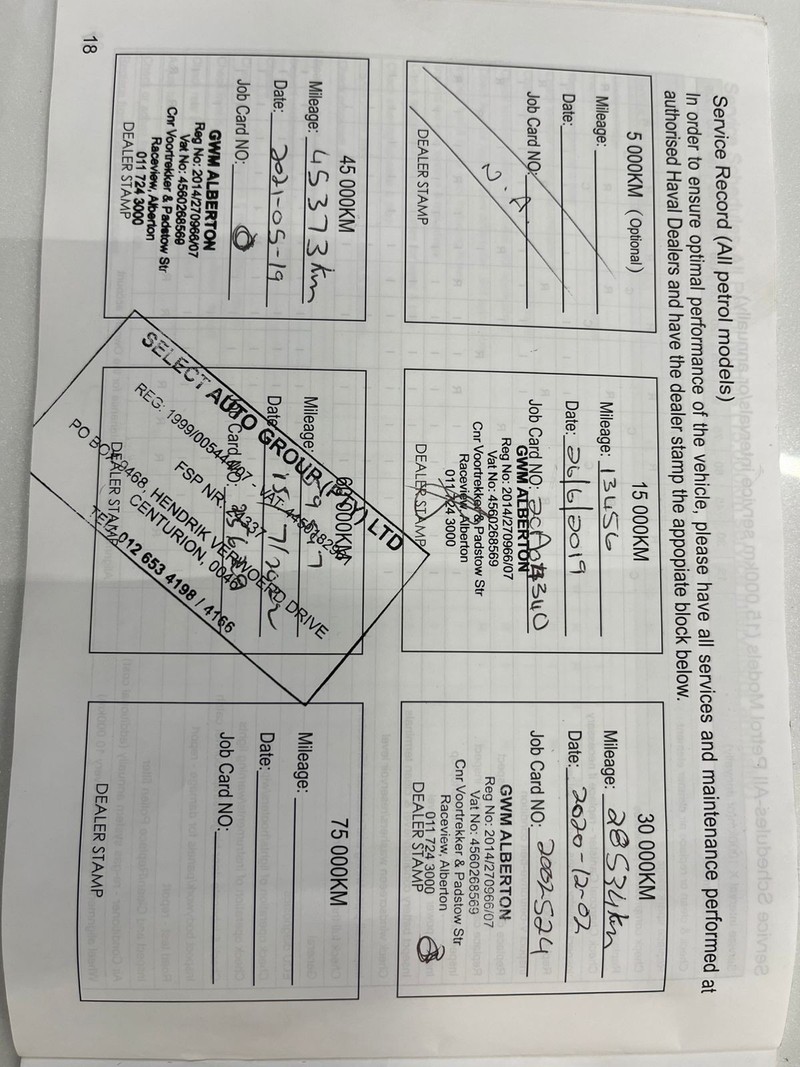 Service Record (All petrol models)
In order to ensure optimal performance of the vehicle, please have all services and maintenance performed at
authorised Haval Dealers and have the dealer stamp the appopiate block below.
5 000KM (Optional)
Mileage:
Date:
Job Card NO:
N.A.
DEALER STAMP
15 000KM
Mileage: 13456
Date: 26/6/2019
Job Card NO:
GWM ALBERTON
Reg No: 2014/270966/07
Vat No: 4560268569
Cnr Voortrekker & Padstow Str
Raceview, Alberton
011 724 3000
DEALER STAMP
30 000KM
Mileage: 28534km
Date: 2020-12-02
Job Card NO:
GWM ALBERTON
Reg No: 2014/270966/07
Vat No: 4560268569
Cnr Voortrekker & Padstow Str
Raceview, Alberton
011 724 3000
DEALER STAMP
45 000KM
Mileage: 45373km
Date: 2021-05-19
Job Card NO:
GWM ALBERTON
Reg No: 2014/270966/07
Vat No: 4560268569
Cnr Voortrekker & Padstow Str
Raceview, Alberton
011 724 3000
DEALER STAMP
60 000KM
Mileage:
Date:
Job Card NO:
DEALER STAMP
SELECT AUTO GROUP (PTY) LTD
REG: 1999/005444/07 - VAT:
FSP NR:
PO BOX 9468, HENDRIK VERWOERD DRIVE
CENTURION, 0046
TEL: 012 653 4198 / 4166
75 000KM
Mileage:
Date:
Job Card NO:
DEALER STAMP
18